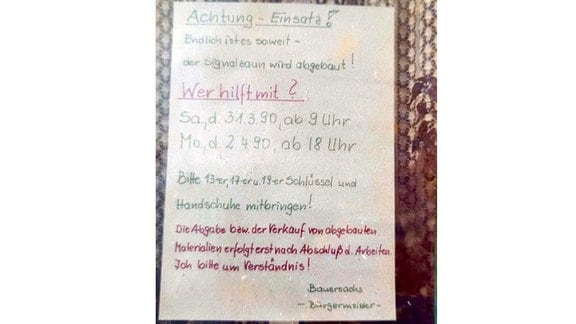 Achtung - Einsatz!
Endlich ist es soweit -
der Signalzaun wird abgebaut!
Wer hilft mit?
Sa, d. 31.3.90, ab 9 Uhr
Mo, d. 2.4.90, ab 18 Uhr
Bitte 13-er, 17-er u. 19-er Schlüssel und
Handschuhe mitbringen!
Die Abgabe bzw. der Verkauf von abgebauten
Materialien erfolgt erst nach Abschluß d. Arbeiten.
Ich bitte um Verständnis!
Bauersachs
- Bürgermeister -